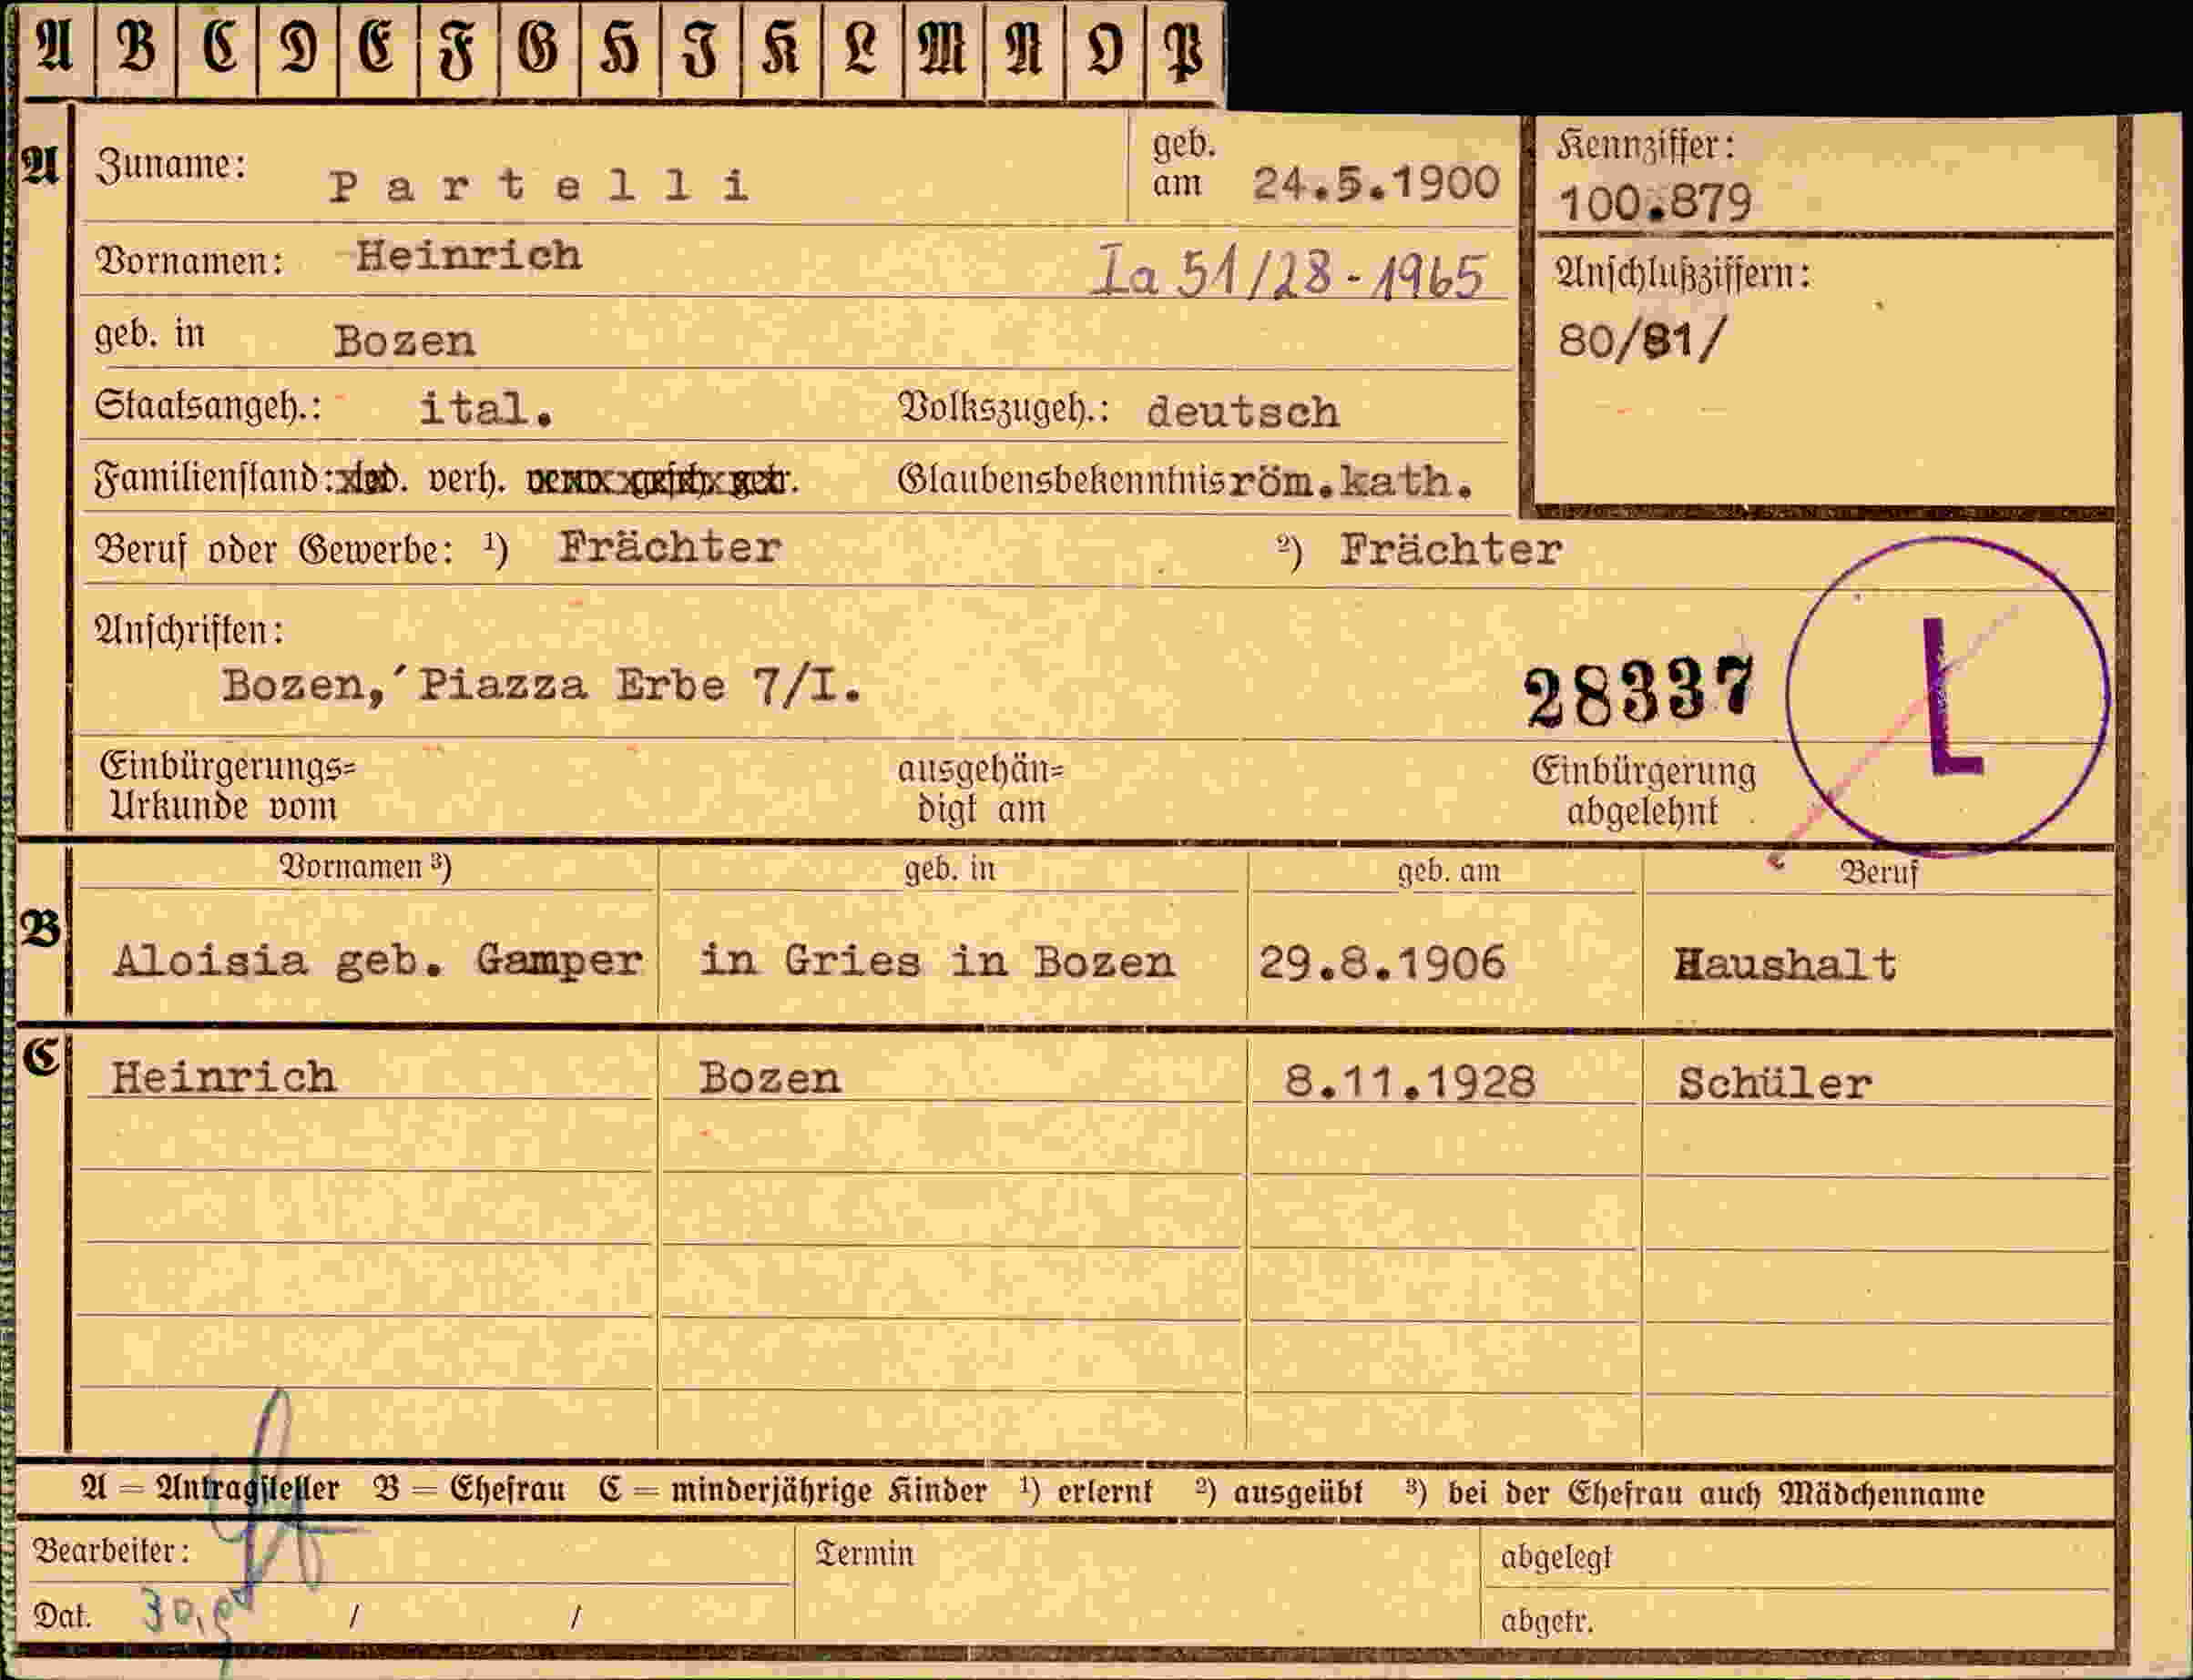 A B C D E F G H J K L M N O P
A Zuname: Partelli geb. am 24.5.1900
Kennziffer:
100.879
Vornamen: Heinrich Ia 51/28-1965
Anschlußziffern:
80/81/
geb. in Bozen
Staatsangeh.: ital. Volkszugeh.: deutsch
Familienstand: led. verh. verw. gesch. getr. Glaubensbekenntnis röm.kath.
Beruf oder Gewerbe: ¹) Frächter ²) Frächter
Anschriften:
Bozen, Piazza Erbe 7/I.
28337 L
Einbürgerungs=
Urkunde vom
ausgehän=
digt am
Einbürgerung
abgelehnt
Vornamen ³) geb. in geb. am Beruf
B Aloisia geb. Gamper in Gries in Bozen 29.8.1906 Haushalt
C Heinrich Bozen 8.11.1928 Schüler
A = Antragsteller B = Ehefrau C = minderjährige Kinder ¹) erlernt ²) ausgeübt ³) bei der Ehefrau auch Mädchenname
Bearbeiter: Termin abgelegt
Dat. / / abgetr.